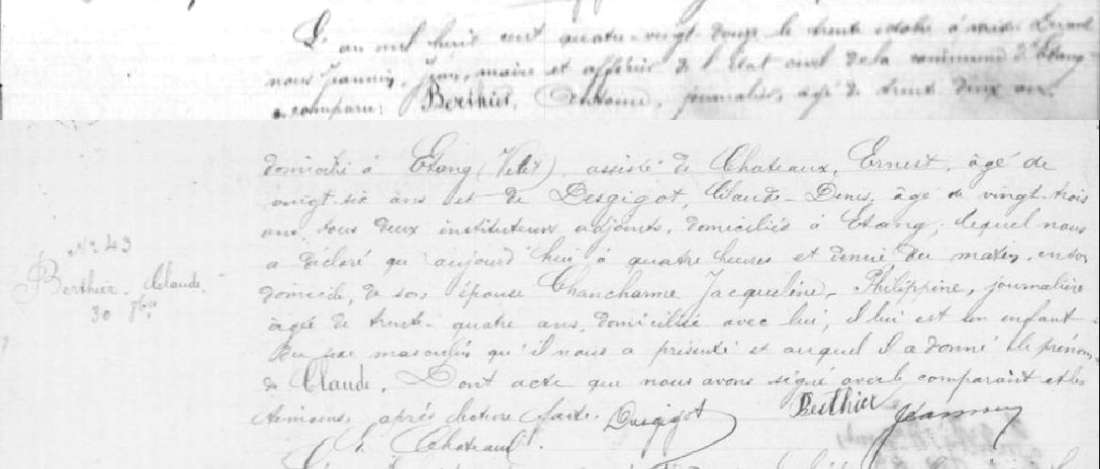 L'an mil huit cent quatre-vingt-douze le trente octobre à midi Devant
nous Jeannin, Jean, maire et officier de l'état civil de la commune d'Etang
a comparu: Berthier, Antoine, journalier, âgé de trente deux ans
domicilié à Etang (Velet) assisté de Chateaux, Ernest, âgé de
vingt-six ans et de Desgigot, Claude-Denis, âgé de vingt-trois
ans, tous deux instituteurs adjoints, domiciliés à Etang; lequel nous
a déclaré qu'aujourd'hui à quatre heures et demie du matin, en son
N° 43
Berthier, Claude.
30 8bre
domicile, de son épouse Chancharme Jacqueline, Philippine, journalière
âgée de trente-quatre ans, domiciliée avec lui, il lui est un enfant
du sexe masculin qu'il nous a présenté et auquel il a donné le prénom
de Claude. Dont acte que nous avons signé avec le comparant et les
témoins, après lecture faite. Desgigot Berthier Jeannin
Chateaux.